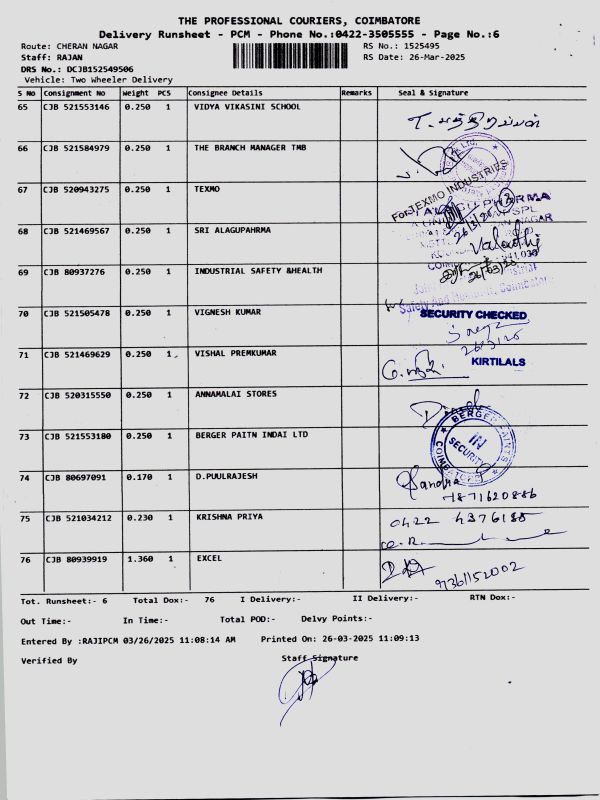 THE PROFESSIONAL COURIERS, COIMBATORE
Delivery Runsheet - PCM - Phone No.:0422-3505555 - Page No.:6
Route: CHERAN NAGAR RS No.: 1525495
Staff: RAJAN RS Date: 26-Mar-2025
DRS No.: DCJB152549506
Vehicle: Two Wheeler Delivery
S No Consignment No Weight PCS Consignee Details Remarks Seal & signature
65 CJB 521553146 0.250 1 VIDYA VIKASINI SCHOOL
66 CJB 521584979 0.250 1 THE BRANCH MANAGER TMB
67 CJB 520943275 0.250 1 TEXMO For TEXMO INDUSTRIES
68 CJB 521469567 0.250 1 SRI ALAGUPAHRMA
69 CJB 80937276 0.250 1 INDUSTRIAL SAFETY &HEALTH 26/03/25
70 CJB 521505478 0.250 1 VIGNESH KUMAR SECURITY CHECKED
71 CJB 521469629 0.250 1 VISHAL PREMKUMAR KIRTILALS
72 CJB 520315550 0.250 1 ANNAMALAI STORES
73 CJB 521553180 0.250 1 BERGER PAITN INDAI LTD BERGER PAINTS IN SECURITY COIMBATORE
74 CJB 80697091 0.170 1 D.PUULRAJESH
75 CJB 521034212 0.230 1 KRISHNA PRIYA 0422 4376185
76 CJB 80939919 1.360 1 EXCEL 9361152002
Tot. Runsheet:- 6 Total Dox:- 76 I Delivery:- II Delivery:- RTN Dox:-
Out Time:- In Time:- Total POD:- Delvy Points:-
Entered By :RAJIPCM 03/26/2025 11:08:14 AM Printed On: 26-03-2025 11:09:13
Verified By Staff Signature